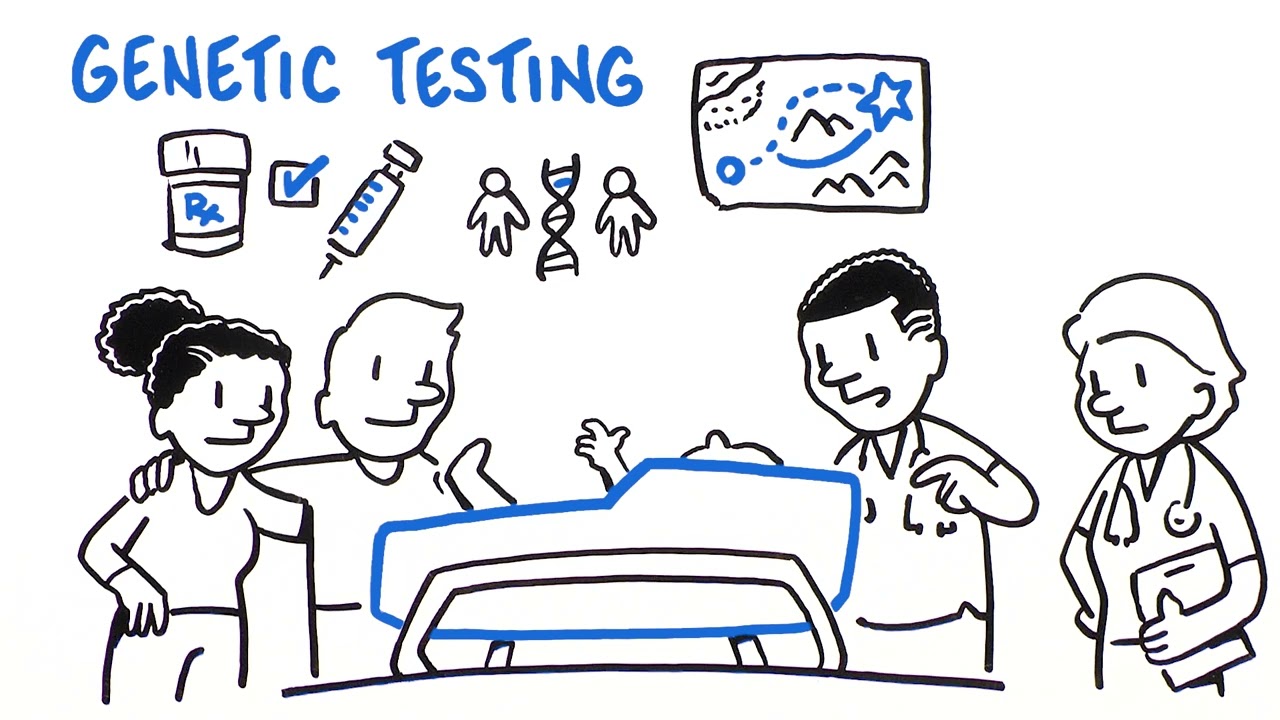 GENETIC TESTING
Rx